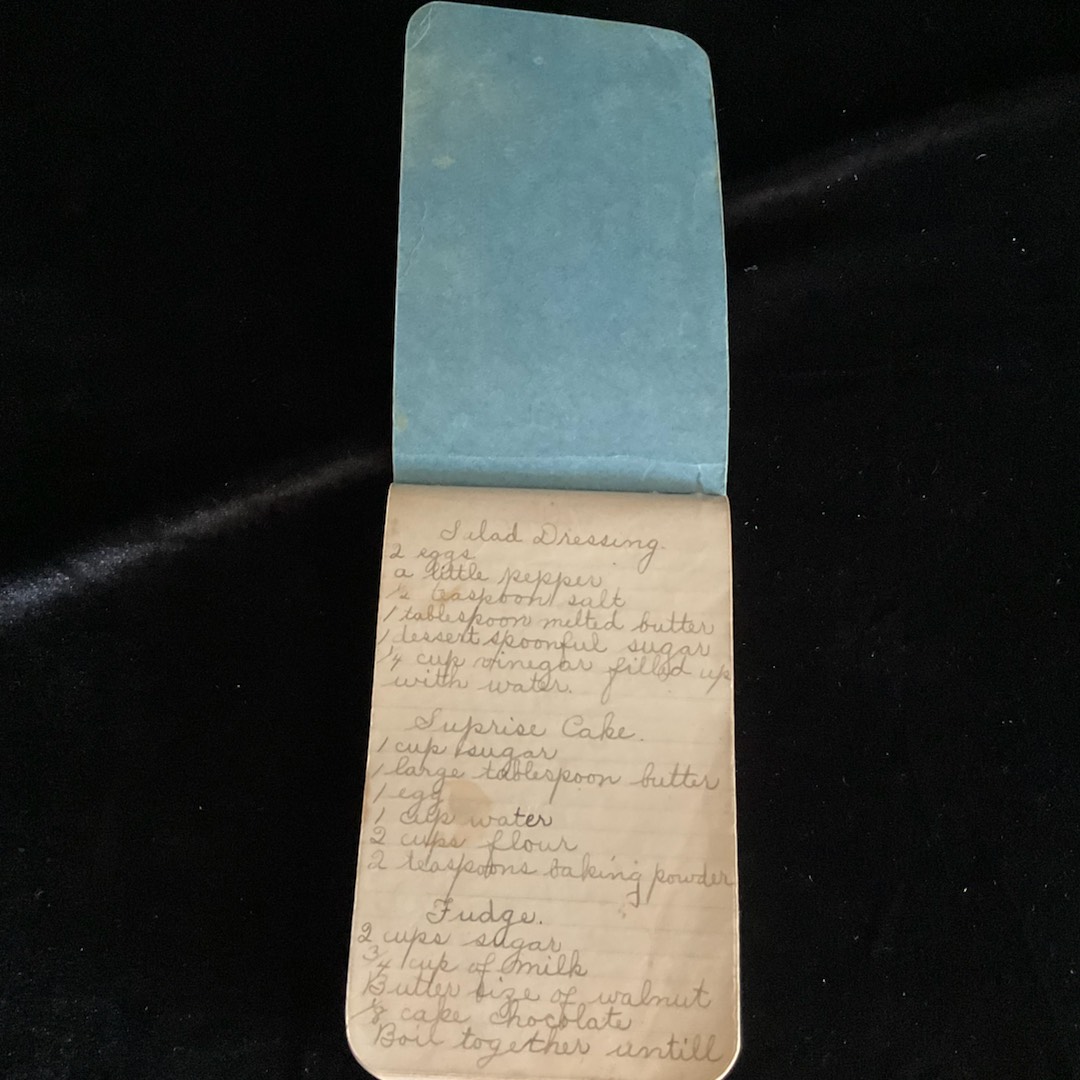 Salad Dressing.
2 eggs
a little pepper
½ teaspoon salt
1 tablespoon melted butter
1 dessert spoonful sugar
¼ cup vinegar filled up
with water.
Suprise Cake.
1 cup sugar
1 large tablespoon butter
1 egg
1 cup water
2 cups flour
2 teaspoons baking powder
Fudge.
2 cups sugar
¾ cup of milk
Butter size of walnut
⅛ cake chocolate
Boil together untill